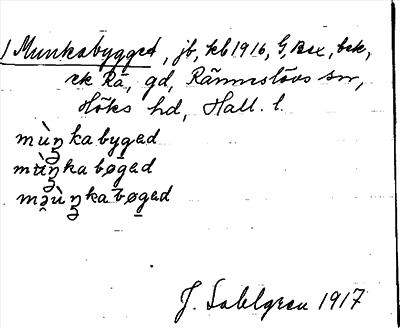 1 Munkabygget, jb, kb 1916, G, Bex, bek,
ek Rä, gd, Ränneslövs sn,
Höks hd, Hall. l.
mùŋkabygad
mùŋkabøgad
məùŋkabøgad
J. Sahlgren 1917